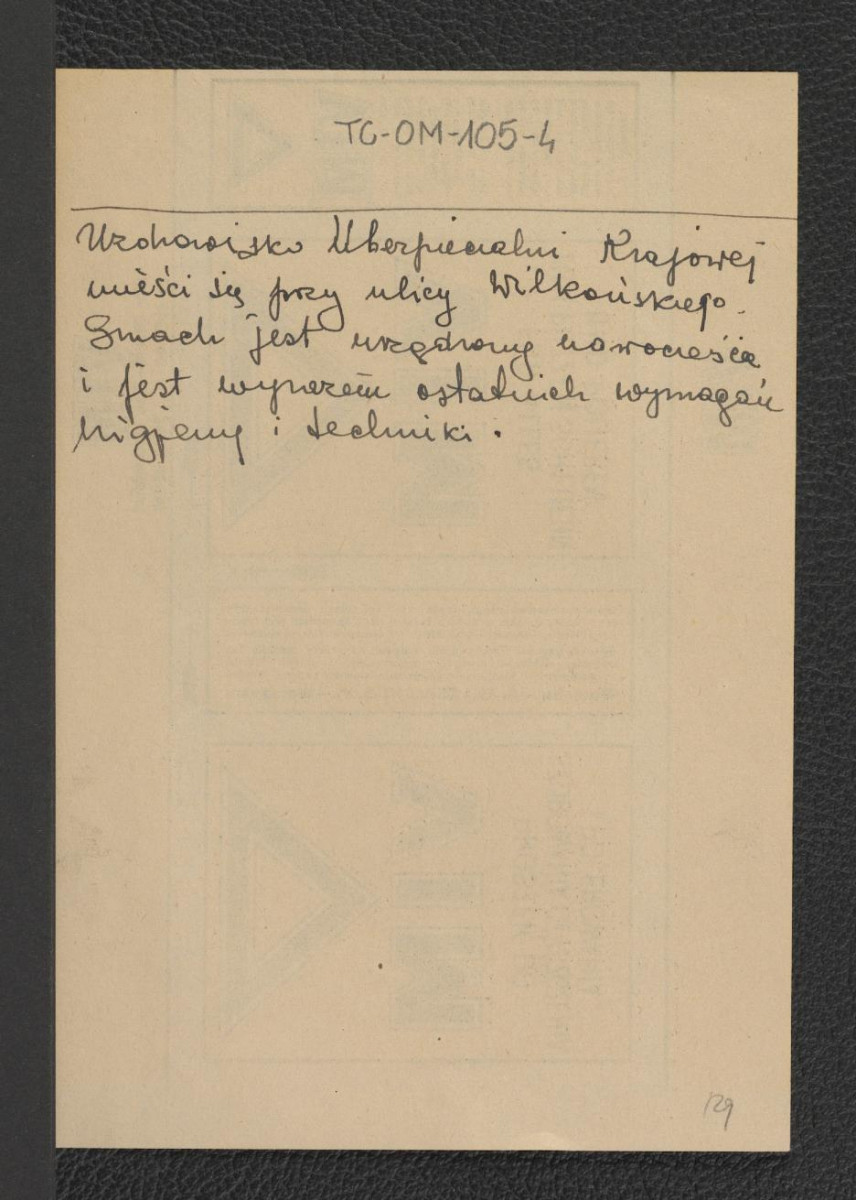 TC-OM-105-4
Uzdrowisko Ubezpieczalni Krajowej
mieści się przy ulicy Wilkońskiego.
Gmach jest urządzony nowocześnie
i jest wyrazem ostatnich wymagań
higjeny i techniki.
129